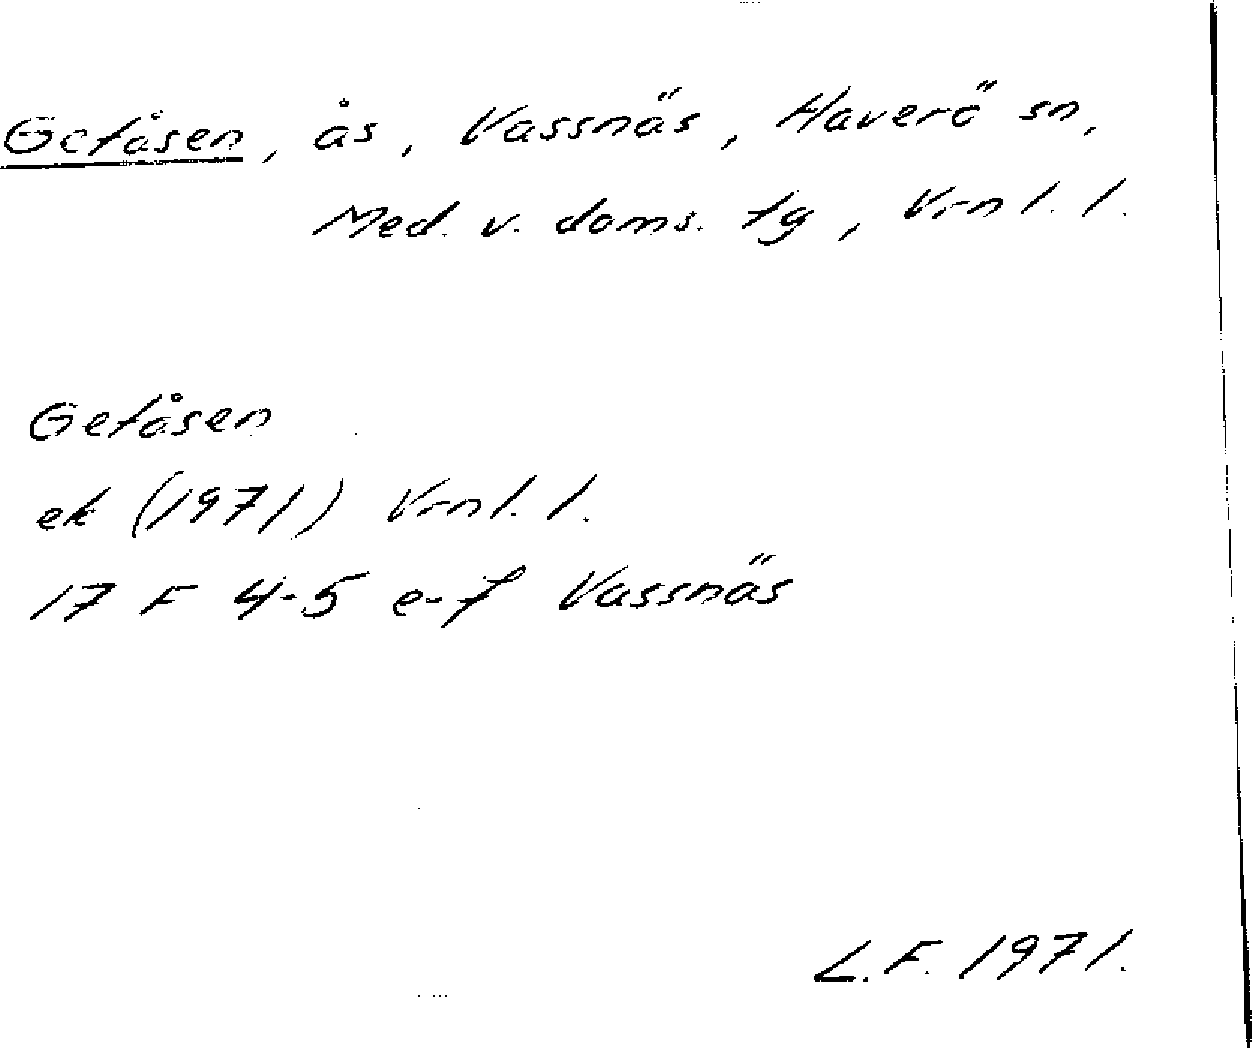 Getåsen, ås, Vassnäs, Haverö sn,
Med. v. doms. tg, Vrnl. l.
Getåsen
ek (1971) Vrnl. l.
17 F 4-5 e-f Vassnäs
L.F. 1971.